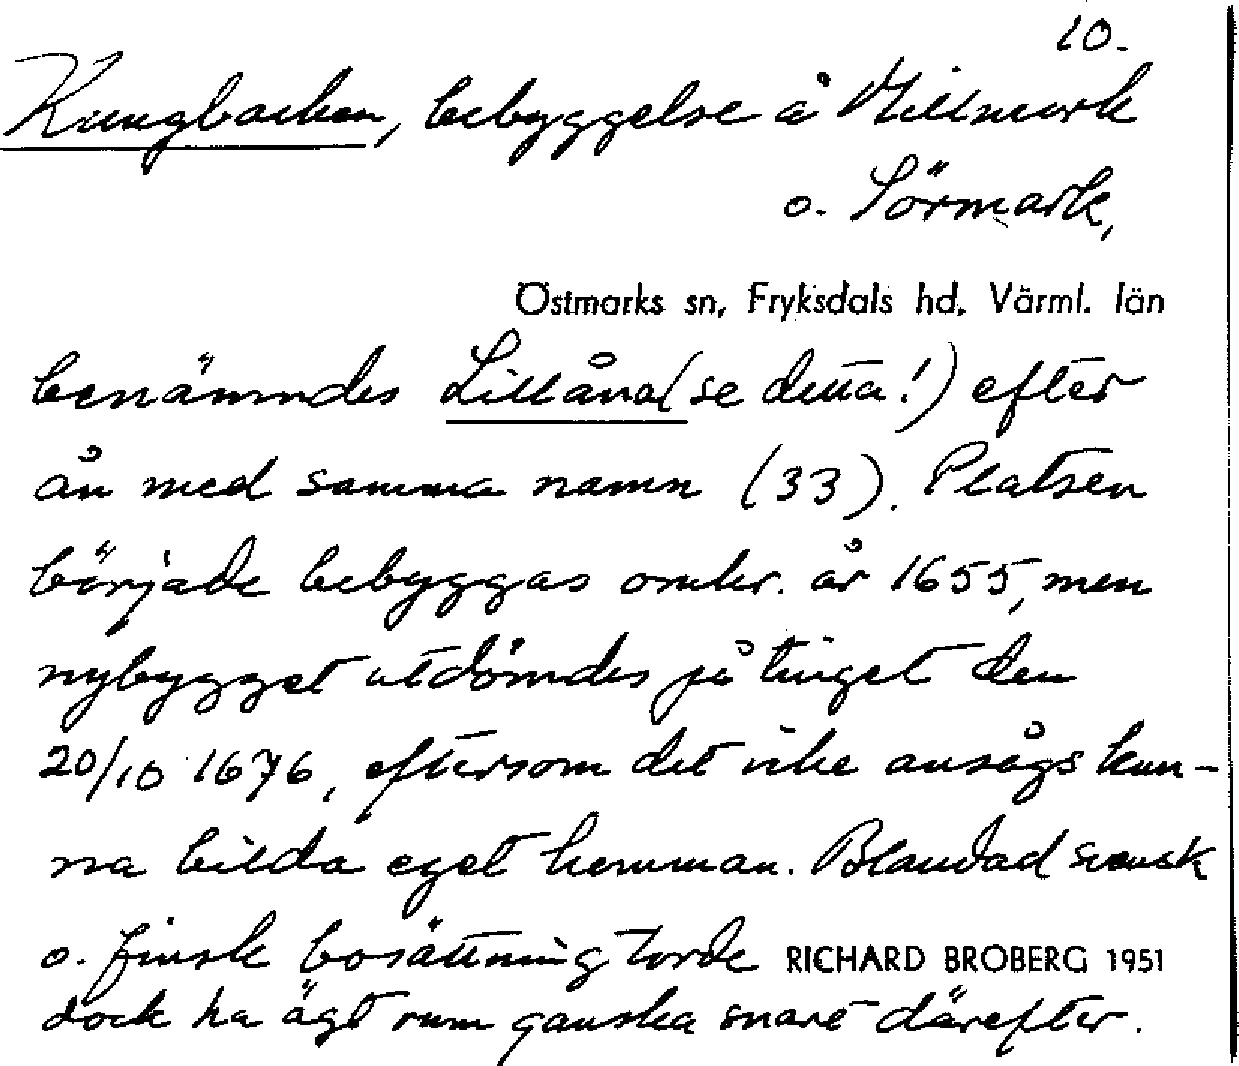 10.
Kungbacken, bebyggelse å Millmark
o. Sörmark,
Östmarks sn, Fryksdals hd. Värml. län
benämndes Lillåna (se detta!) efter
ån med samma namn (33). Platsen
började bebyggas omkr. år 1655, men
nybygget utdömdes på tinget den
20/10 1676, eftersom det icke ansågs kun-
na bilda eget hemman. Blandad svensk
o. finsk bosättning torde
RICHARD BROBERG 1951
dock ha ägt rum ganska snart därefter.